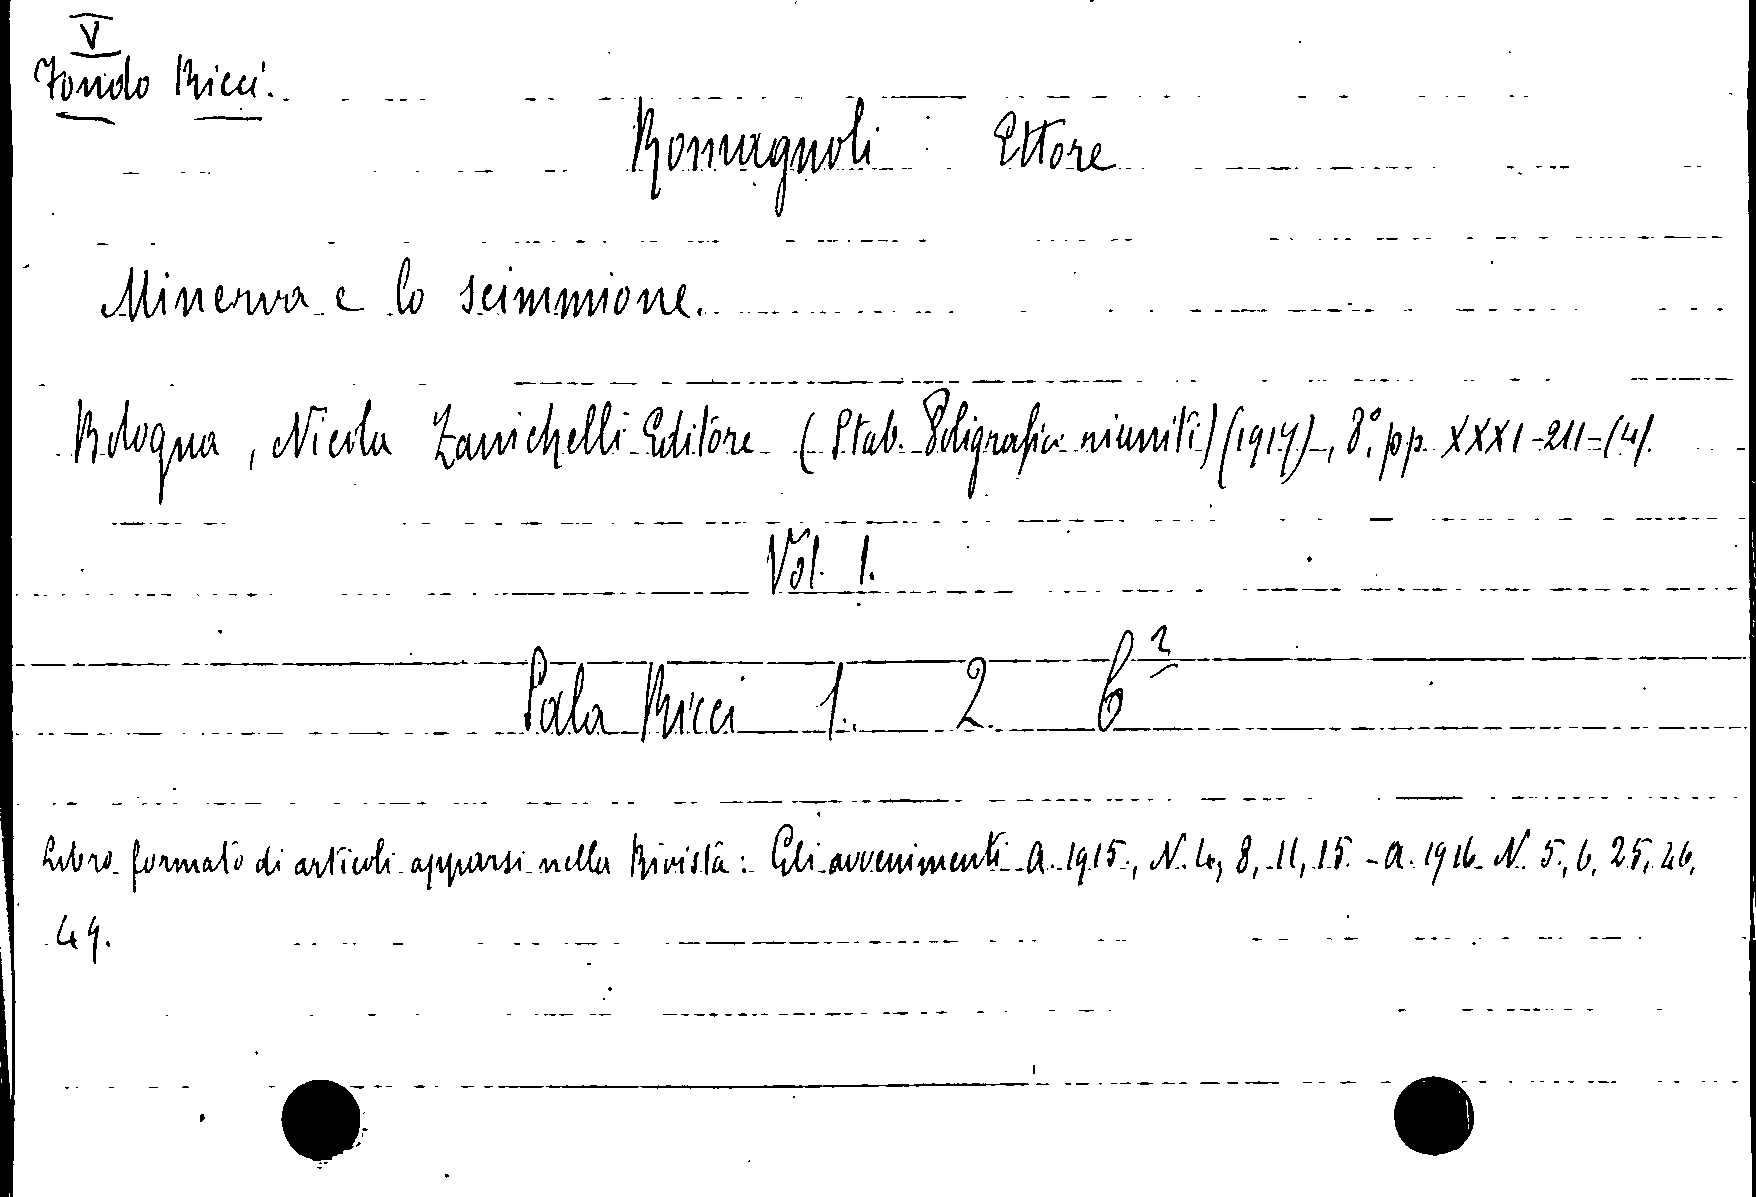 V
Fondo Ricci.
Romagnoli Ettore
Minerva e lo scimmione.
Bologna, Nicola Zanichelli Editore (Stab. Poligrafici riuniti) (1917), 8°, pp. XXXI-211-(4).
Vol. 1.
Sala Ricci 1. 2. 6²
Libro formato di articoli apparsi nella Rivista: Gli avvenimenti a. 1915, N. 4, 8, 11, 15. - a. 1916 N. 5, 6, 25, 46,
49.